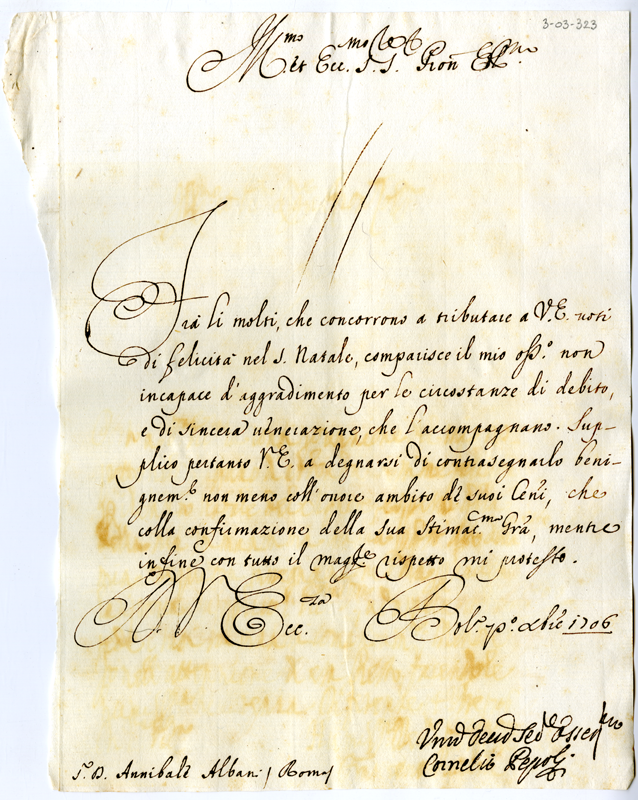 3-03-323
et Ecc.
Fra li molti, che concorrono a tributare a V.E. voti
di felicità nel S. Natale, comparisce il mio oss.o non
incapace d'aggradimento per le circostanze di debito,
e di sincera venerazione, che l'accompagnano. Sup-
plico pertanto V.E. a degnarsi di contrasegnarlo beni-
gnem.e non meno coll'onore ambito de suoi Ceñi, che
colla confirmazione della sua Stimat.ma Grã, mentre
in fine con tutto il mag.re rispetto mi protesto.
D. V. Ecc.za Bol.a p.o Xbre 1706
Cornelio Pepoli
S.r D. Annibale Albani / Roma /